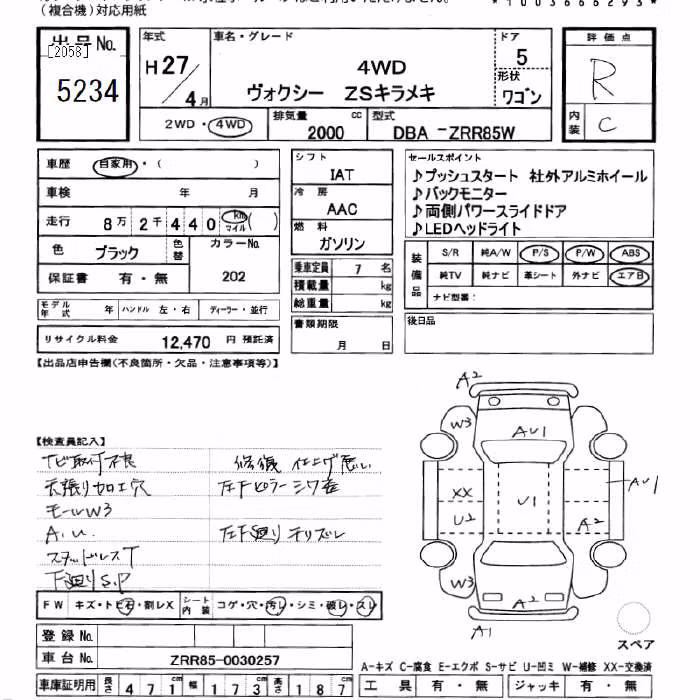 (複合機)対応用紙
*1003666293*
出品No.
[2058]
5234
年式 H27/4月
車名・グレード
4WD
ヴォクシー ZSキラメキ
ドア 5
形状 ワゴン
2WD・4WD
排気量 2000 cc
型式 DBA-ZRR85W
評価点 R
内装 C
車歴 自家用・( )
車検 年 月
走行 8万 2千 4 4 0 km マイル ( )
色 ブラック 色替 カラーNo. 202
保証書 有・無
モデル年式 年 ハンドル 左・右 ディーラー・並行
リサイクル料金 12,470 円 預託済
シフト
IAT
冷房
AAC
燃料
ガソリン
乗車定員 7 名
積載量 kg
総重量 kg
書類期限
月 日
セールスポイント
♪プッシュスタート 社外アルミホイール
♪バックモニター
♪両側パワースライドドア
♪LEDヘッドライト
装備品
S/R 純A/W P/S P/W ABS
純TV 純ナビ 革シート 外ナビ エアB
ナビ型番:
後日品
【出品店申告欄(不良箇所・欠品・注意事項等)】
【検査員記入】
ナビ取付不良 修復 仕上げ悪い
天張り加工穴 左Fピラーシワ歪
モールW3
A.U 左下廻りチリズレ
スタッドレスT
下廻りS.P
FW キズ・トビ石・割レX シート内装 コゲ・穴・汚レ・シミ・破レ・スレ
登録No.
車台No. ZRR85-0030257
車庫証明用 長さ 471cm 幅 173cm 高さ 187cm
A2
W3
AU1
XX
U2
U1
AU1
A2
W3
A2
A1
スペア
A-キズ C-腐食 E-エクボ S-サビ U-凹ミ W-補修 XX-交換済
工具 有・無 ジャッキ 有・無